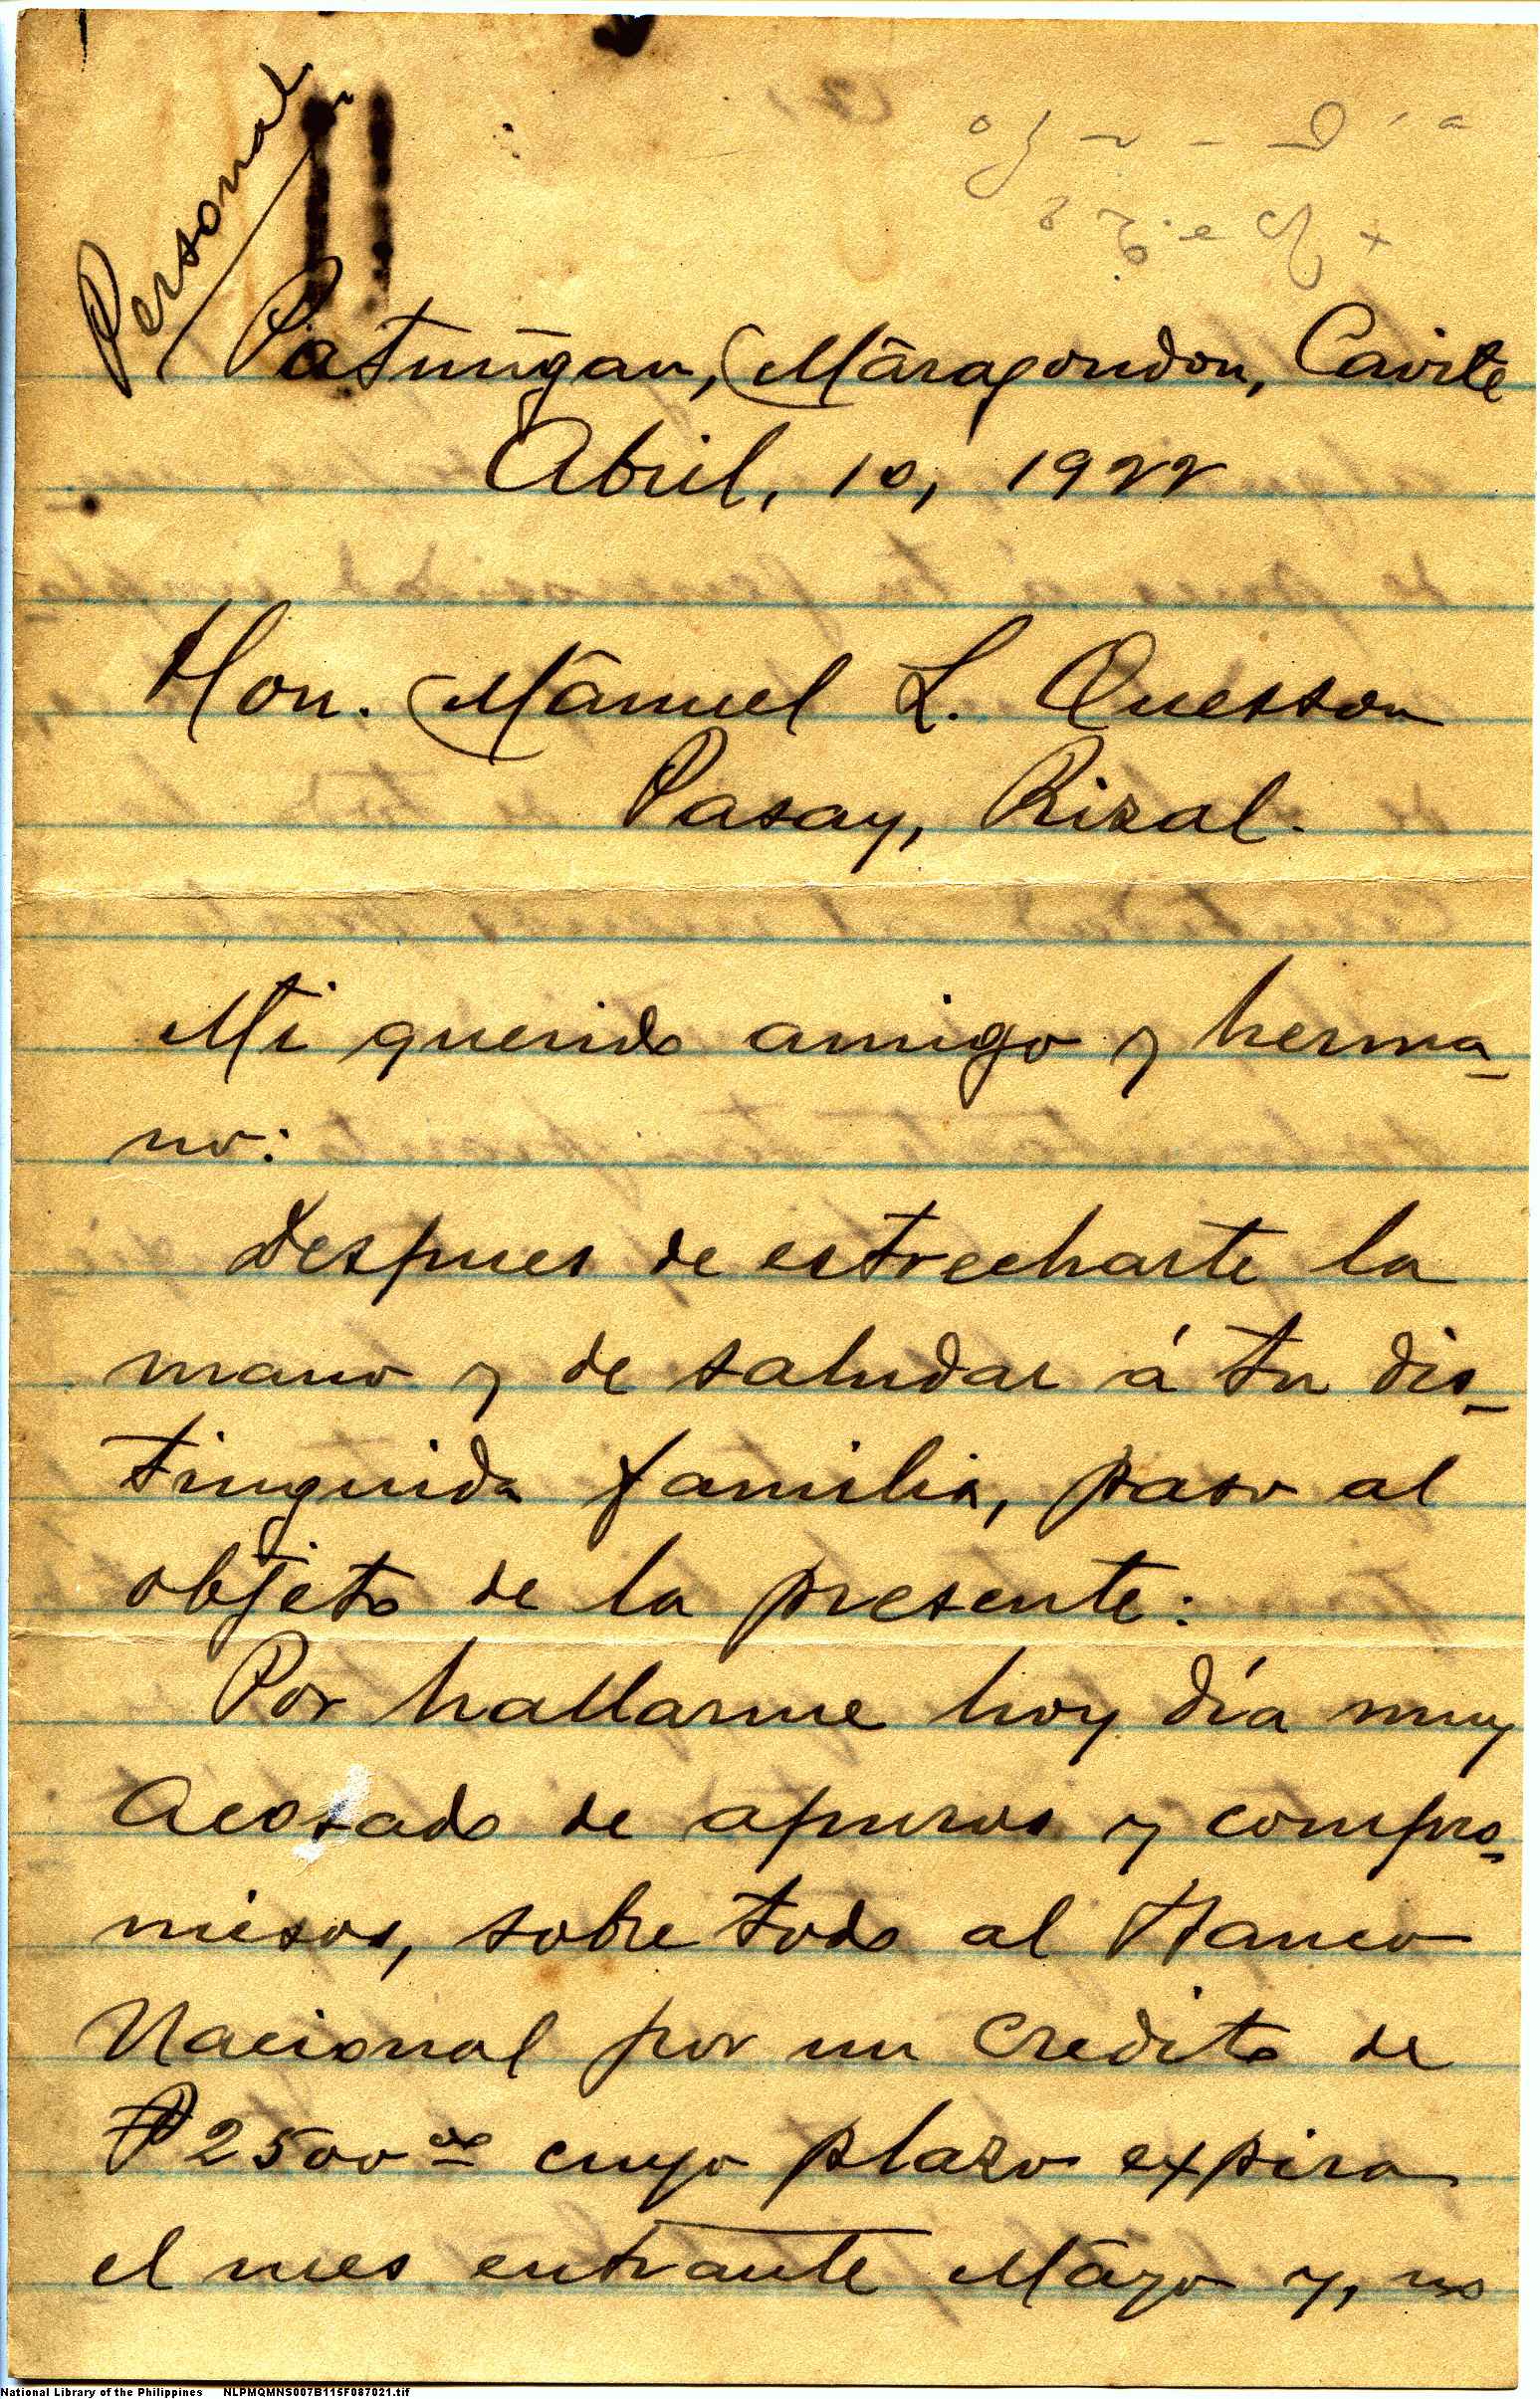 Personal
Patuñgan, Maragondon, Cavite
Abril, 10, 1922
Hon. Manuel L. Quesson
Pasay, Rizal.
Mi querido amigo y herma-
no:
Despues de estrecharte la
mano y de saludar á tu dis-
tinguida familia, paso al
objeto de la presente:
Por hallarme hoy día muy
acosado de apuros y compro-
misos, sobre todo al Banco
Nacional por un credito de
₱2500 00 cuyo plazo expira
el mes entrante Mayo y, no
National Library of the Philippines NLPMQMNS007B115F087021.tif